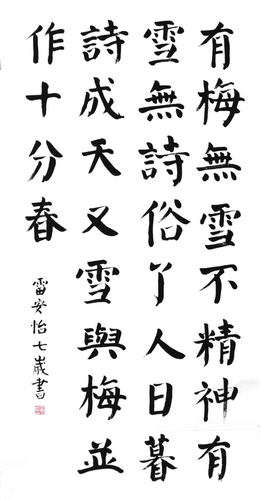 有梅無雪不精神有
雪無詩俗了人日暮
詩成天又雪與梅並
作十分春
雷安怡七歲書